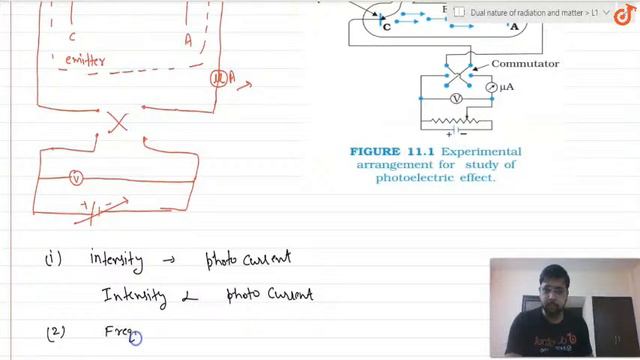 Dual nature of radiation and matter > L1
C
A
emitter
μA
V
+ -
C
A
Commutator
μA
V
+ −
FIGURE 11.1 Experimental
arrangement for study of
photoelectric effect.
(i) intensity → photo current
Intensity α photo current
(2) Freq